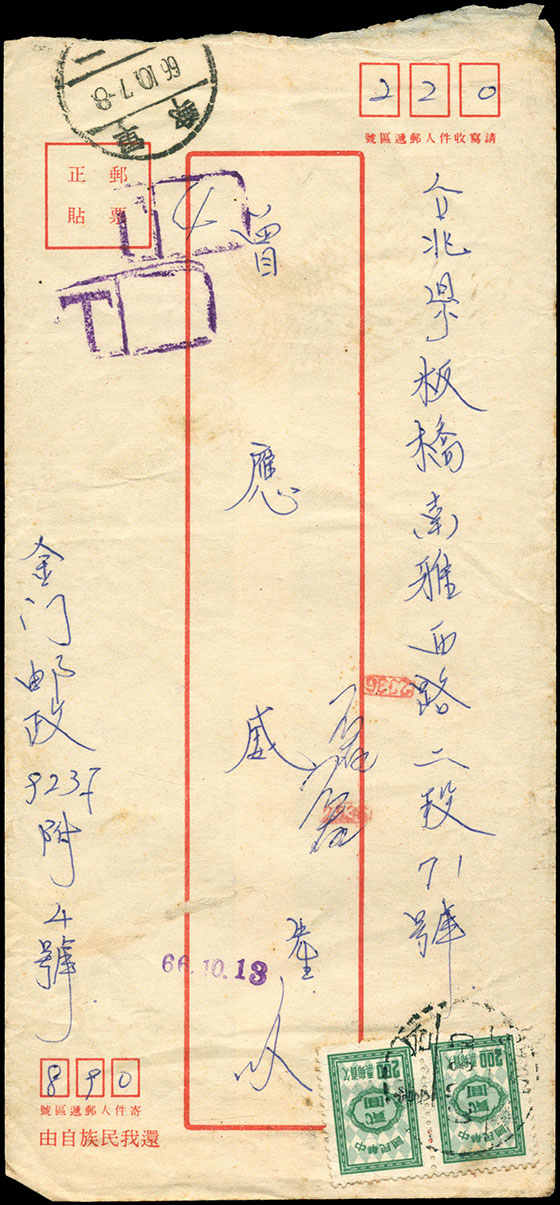 220
請寫收件人郵遞區號
台北県板橋南雅西路二段71號
曾
應
威
郵票
正貼
66.10.7-8
軍郵
T
T
2336
66.10.13
金门邮政
923千附4號
890
寄件人郵遞區號
還我民族自由
中華民國
貳圓
欠資郵票
200
中華民國
貳圓
欠資郵票
200